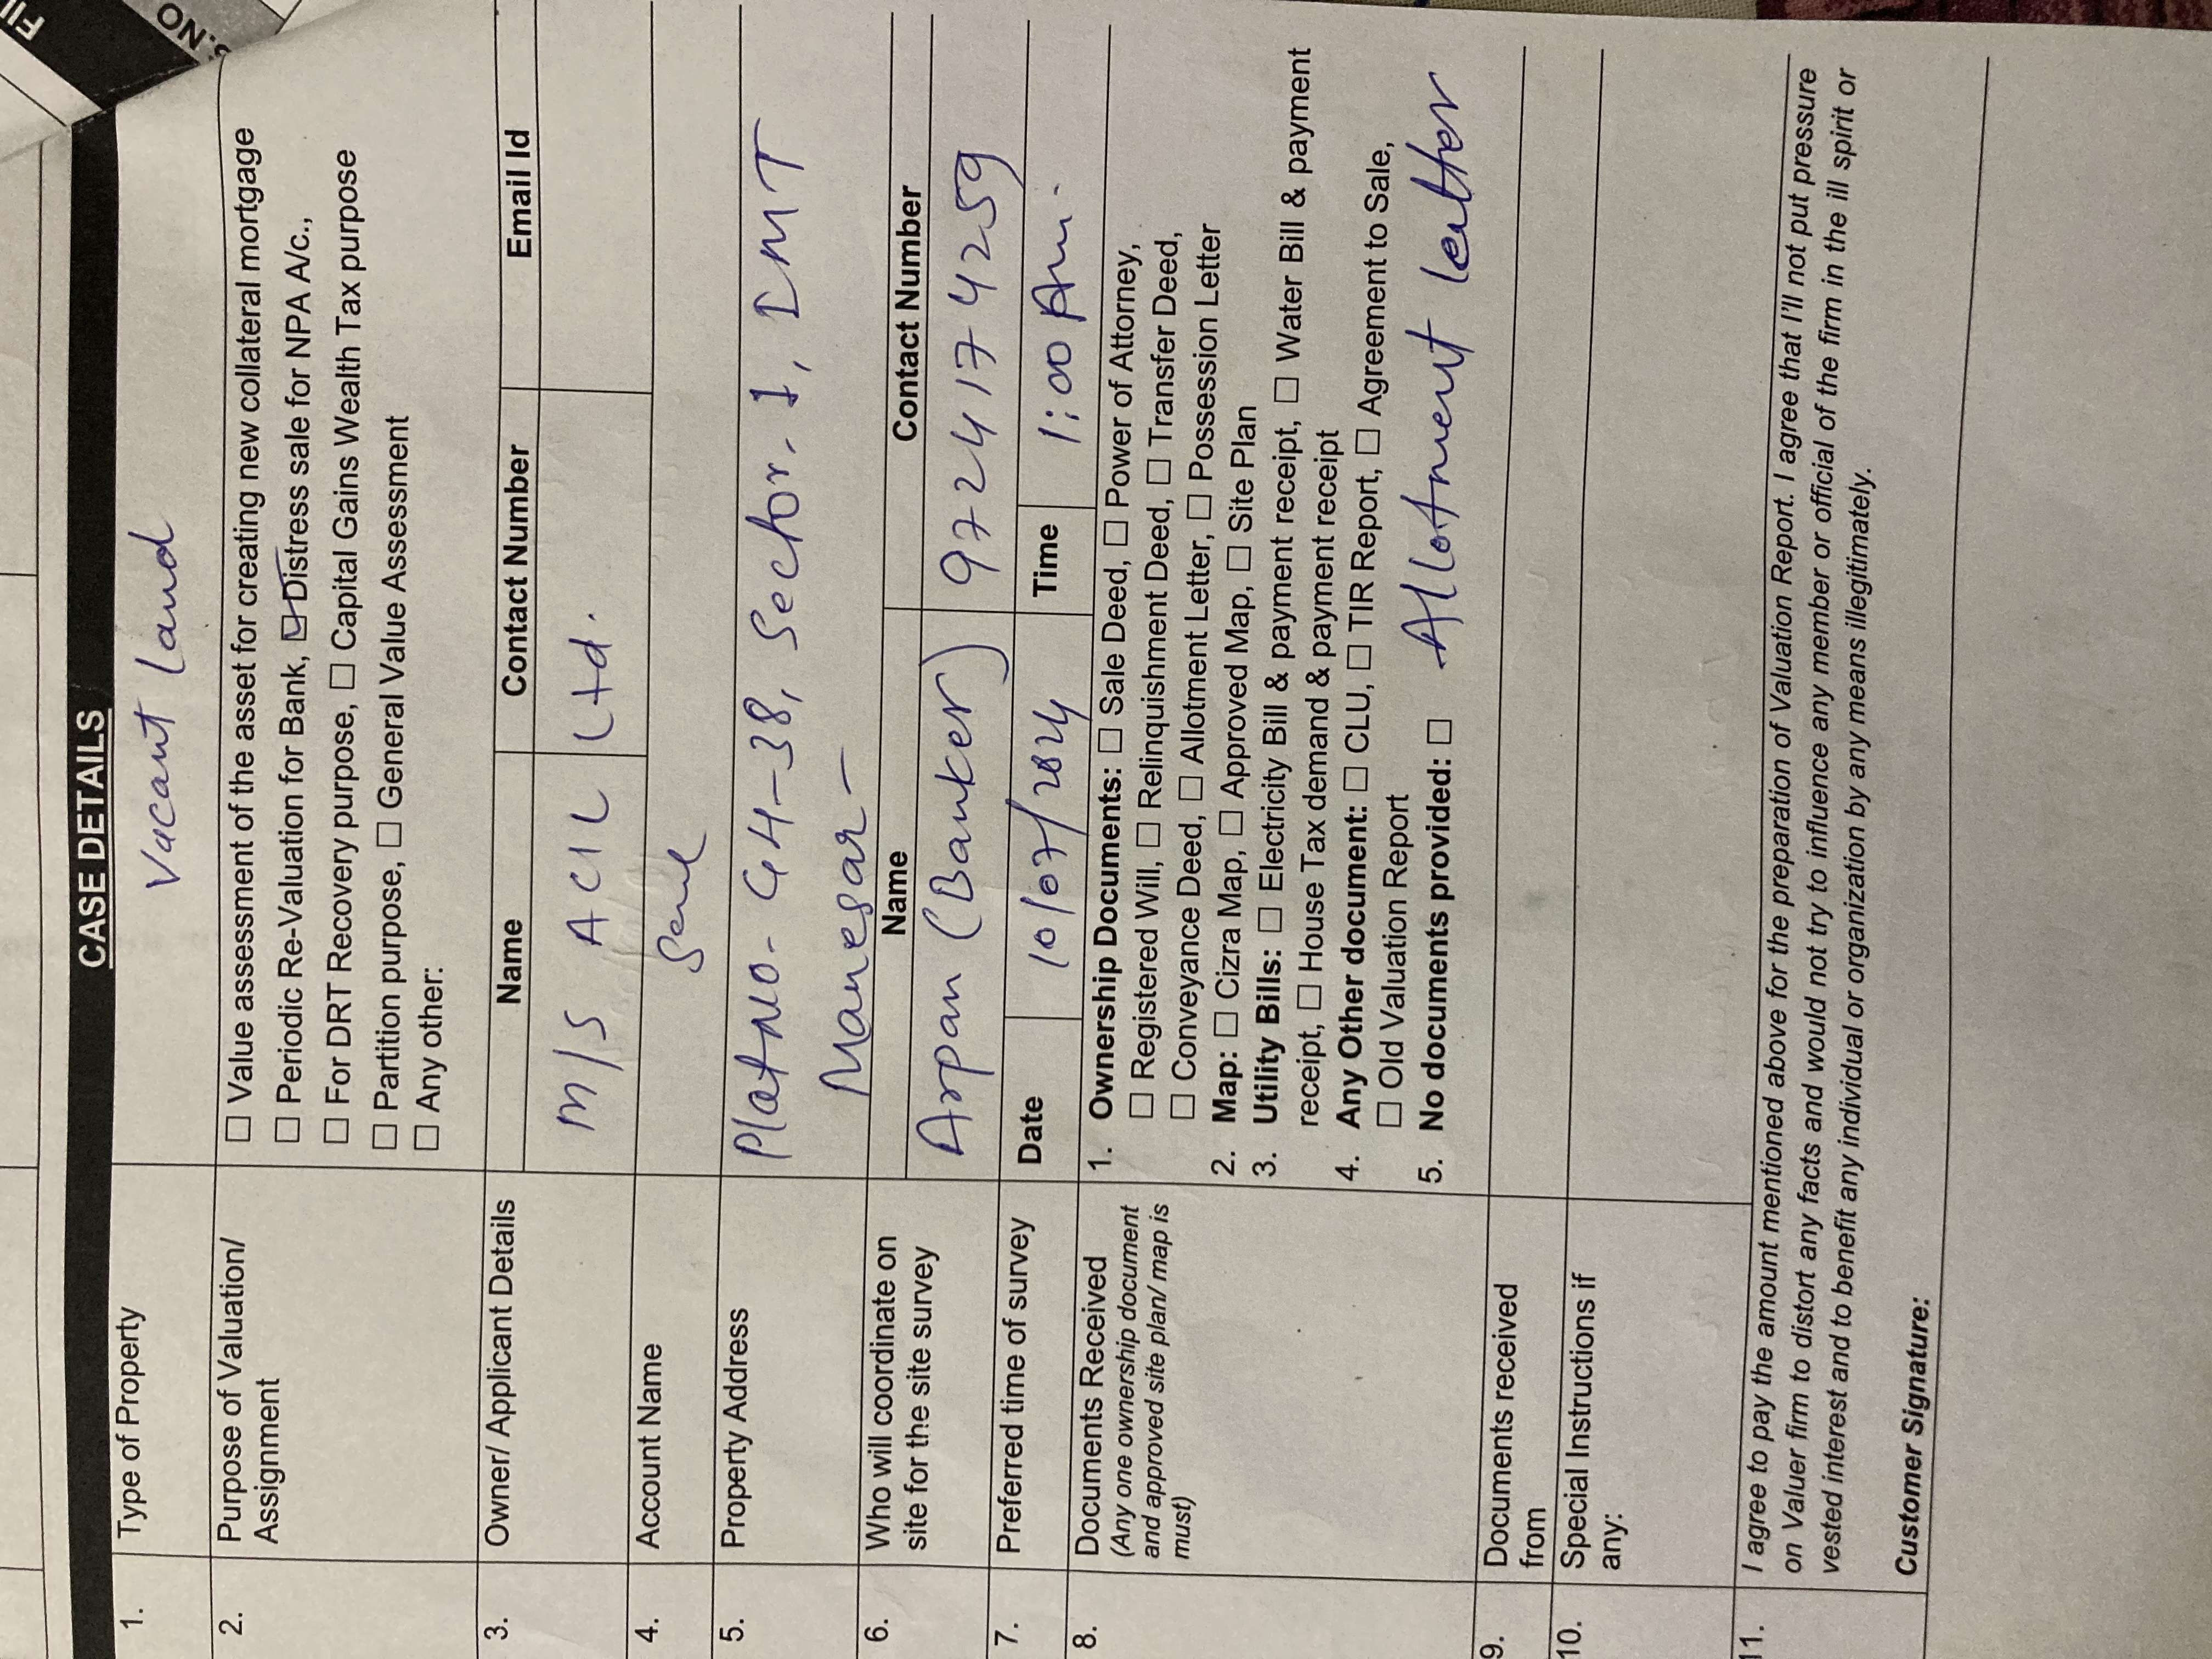 FI
S.NO
CASE DETAILS
1. Type of Property Vacant land
2. Purpose of Valuation/ Assignment
☐ Value assessment of the asset for creating new collateral mortgage
☐ Periodic Re-Valuation for Bank, ☑ Distress sale for NPA A/c.,
☐ For DRT Recovery purpose, ☐ Capital Gains Wealth Tax purpose
☐ Partition purpose, ☐ General Value Assessment
☐ Any other:
3. Owner/ Applicant Details
Name Contact Number Email Id
M/S ACIL Ltd.
4. Account Name Same
5. Property Address Plot No- G4-38, Sector. 1, IMT
Manesar -
6. Who will coordinate on
site for the site survey
Name Contact Number
Arpan (Banker) 9724174259
7. Preferred time of survey Date 10/07/2024 Time 1:00 Am.
8. Documents Received
(Any one ownership document
and approved site plan/ map is
must)
1. Ownership Documents: ☐ Sale Deed, ☐ Power of Attorney,
☐ Registered Will, ☐ Relinquishment Deed, ☐ Transfer Deed,
☐ Conveyance Deed, ☐ Allotment Letter, ☐ Possession Letter
2. Map: ☐ Cizra Map, ☐ Approved Map, ☐ Site Plan
3. Utility Bills: ☐ Electricity Bill & payment receipt, ☐ Water Bill & payment
receipt, ☐ House Tax demand & payment receipt
4. Any Other document: ☐ CLU, ☐ TIR Report, ☐ Agreement to Sale,
☐ Old Valuation Report
5. No documents provided: ☐ Allotment letter
9. Documents received
from
10. Special Instructions if
any:
11. I agree to pay the amount mentioned above for the preparation of Valuation Report. I agree that I'll not put pressure
on Valuer firm to distort any facts and would not try to influence any member or official of the firm in the ill spirit or
vested interest and to benefit any individual or organization by any means illegitimately.
Customer Signature: